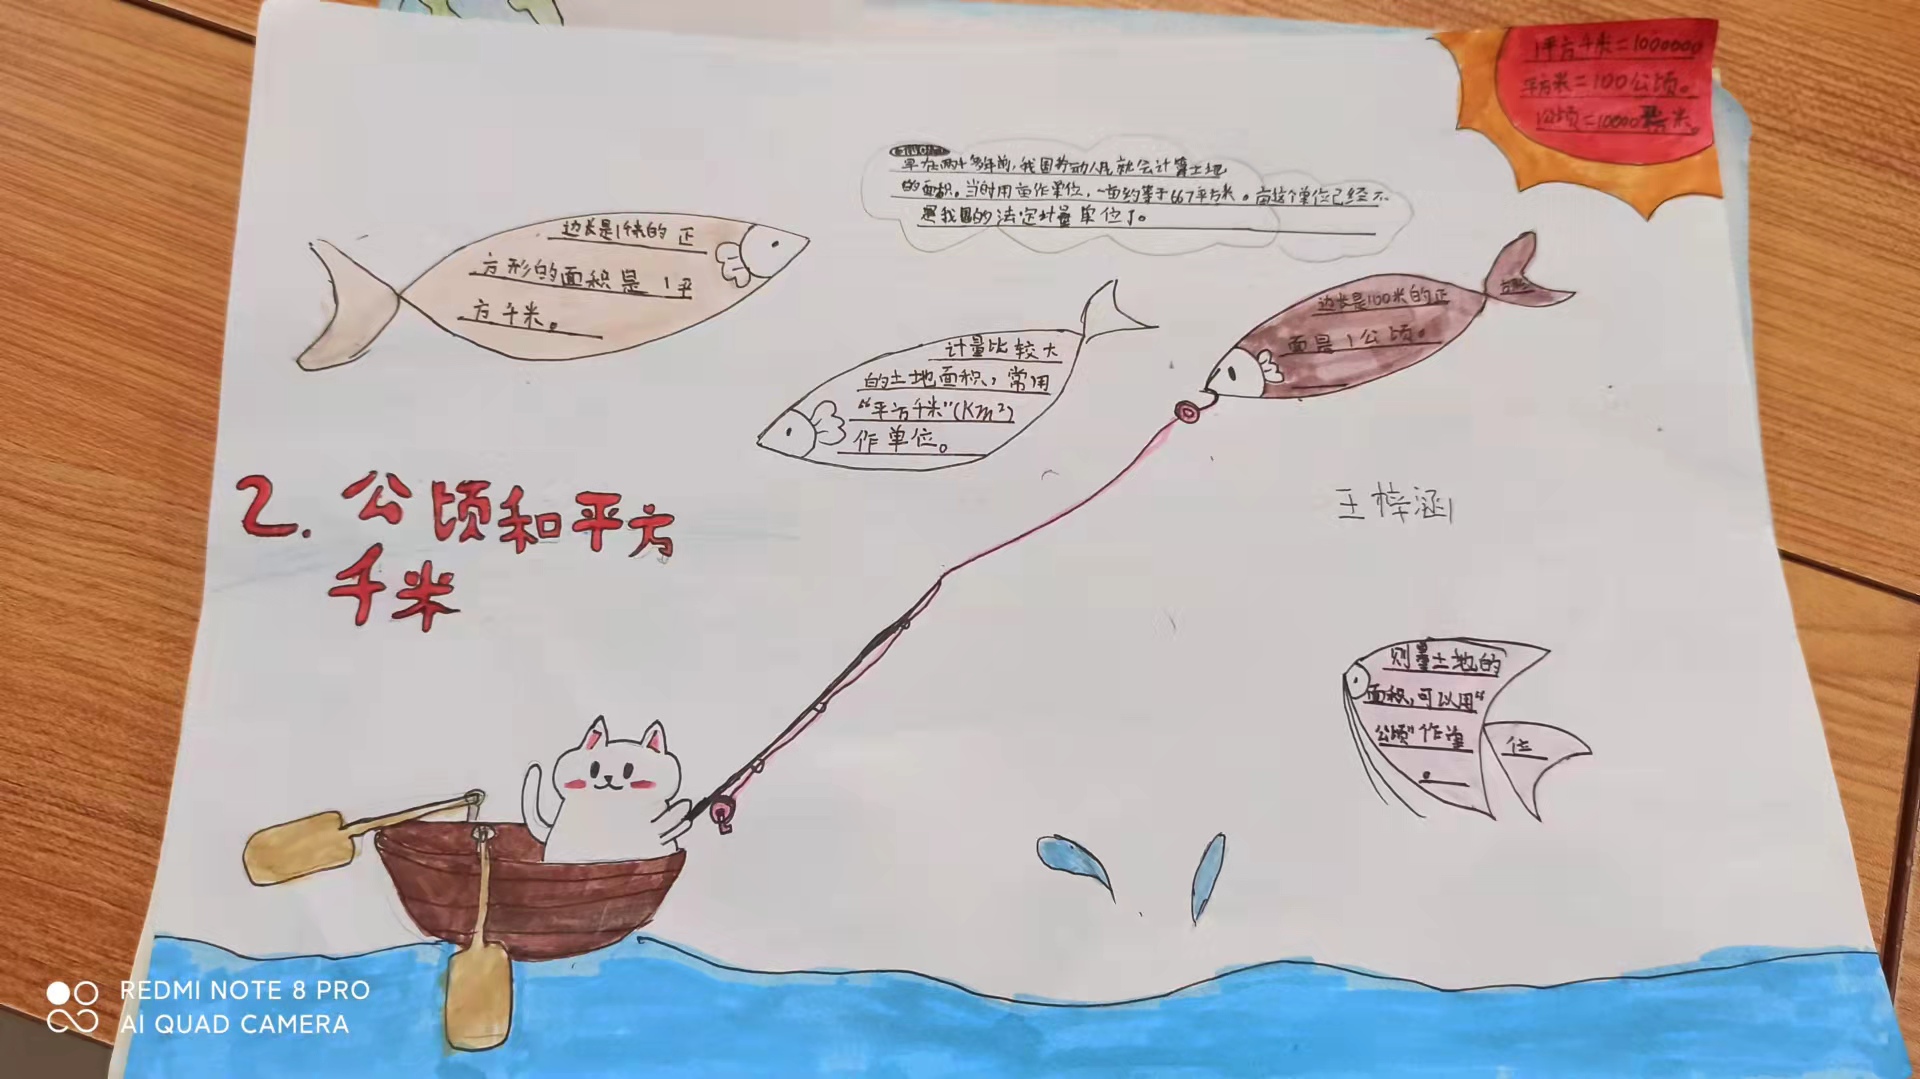 1平方千米=1000000
平方米=100公顷。
1公顷=10000米。
早在两千多年前,我国劳动人民就会计算土地
的面积。当时用亩作单位,一亩约等于667平方米。亩这个单位已经不
是我国的法定计量单位了。
边长是1千米的正
方形的面积是1平
方千米。
计量比较大
的土地面积,常用
“平方千米”(Km²)
作单位。
边长是100米的正
面是1公顷。
2.公顷和平方
千米
王梓涵
则量土地的
面积,可以用“
公顷”作单
位
。
REDMI NOTE 8 PRO
AI QUAD CAMERA